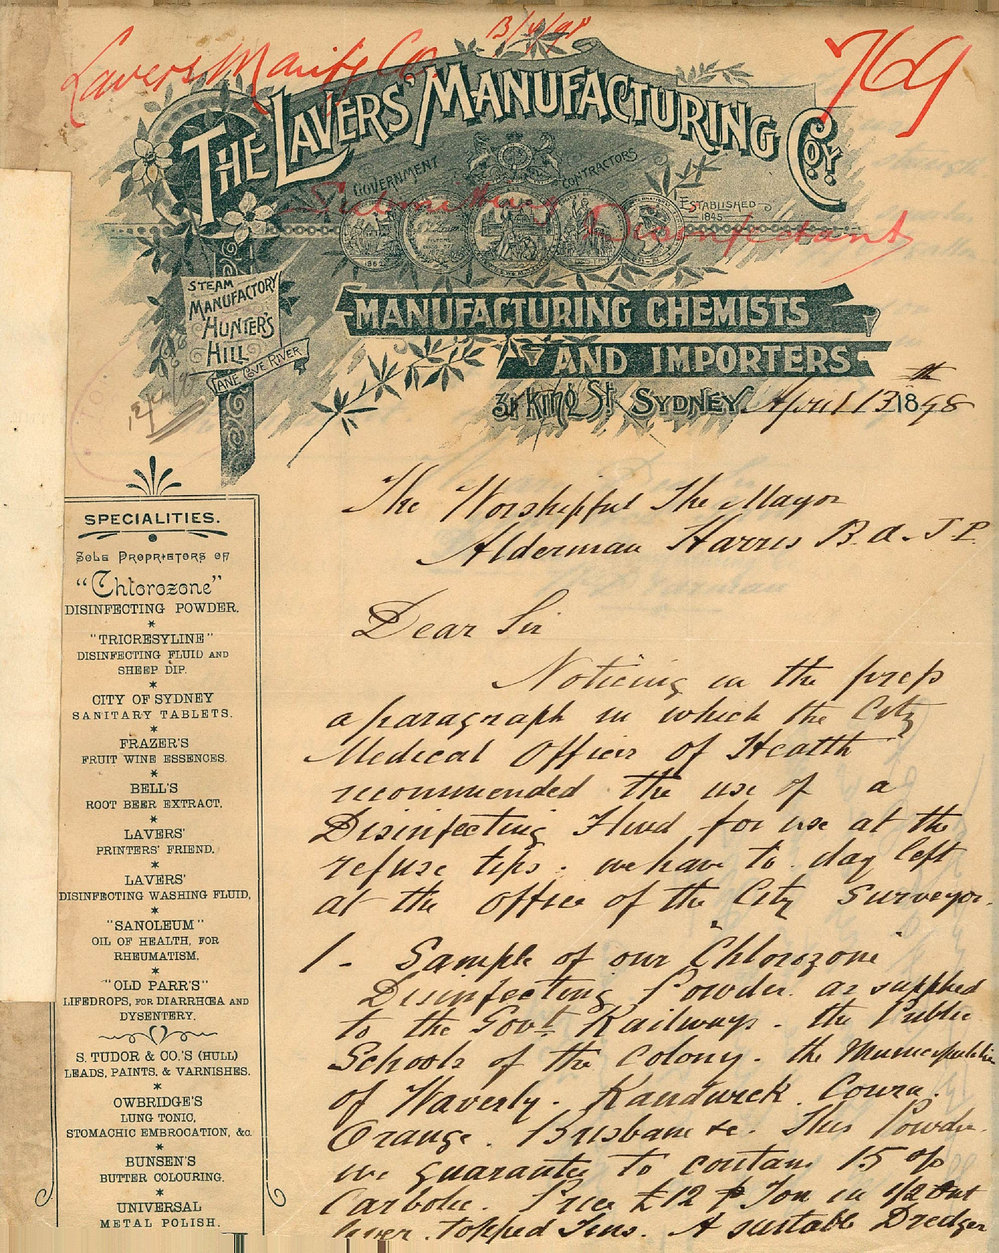 Lavers Manifg Co
13/4/98
769
THE LAVERS' MANUFACTURING COY.
GOVERNMENT CONTRACTORS
ESTABLISHED 1845
Submitting Disinfectant
STEAM
MANUFACTORY
HUNTER'S
HILL
LANE COVE RIVER
MANUFACTURING CHEMISTS
AND IMPORTERS
31 KING ST. SYDNEY. April 13th 1898
The Worshipful The Mayor
Alderman Harris B.A. J P.
Dear Sir
Noticing in the press
a paragraph in which the City
Medical Officer of Health
recommended the use of a
Disinfecting Fluid for use at the
refuse tips. we have to-day left
at the office of the City Surveyor.
1 - Sample of our "Chlorozone"
Disinfecting Powder as supplied
to the Govt Railways. the Public
Schools of the Colony. the Municipalities
of Waverly. Randwick. Cowra.
Orange. Brisbane &c. This Powder
we guarantee to contain 15 %
Carbolic. Price £12 p Ton in 1/2 cwt
lever topped Tins. A suitable Dredger
SPECIALITIES.
SOLE PROPRIETORS OF
"Chlorozone"
DISINFECTING POWDER.
*
"TRICRESYLINE"
DISINFECTING FLUID AND
SHEEP DIP.
*
CITY OF SYDNEY
SANITARY TABLETS.
*
FRAZER'S
FRUIT WINE ESSENCES.
*
BELL'S
ROOT BEER EXTRACT.
*
LAVERS'
PRINTERS' FRIEND.
*
LAVERS'
DISINFECTING WASHING FLUID.
*
"SANOLEUM"
OIL OF HEALTH, FOR
RHEUMATISM.
*
"OLD PARR'S"
LIFEDROPS, FOR DIARRHŒA AND
DYSENTERY.
S. TUDOR & CO.'S (HULL)
LEADS, PAINTS, & VARNISHES.
*
OWBRIDGE'S
LUNG TONIC,
STOMACHIC EMBROCATION, &c.
*
BUNSEN'S
BUTTER COLOURING.
*
UNIVERSAL
METAL POLISH.